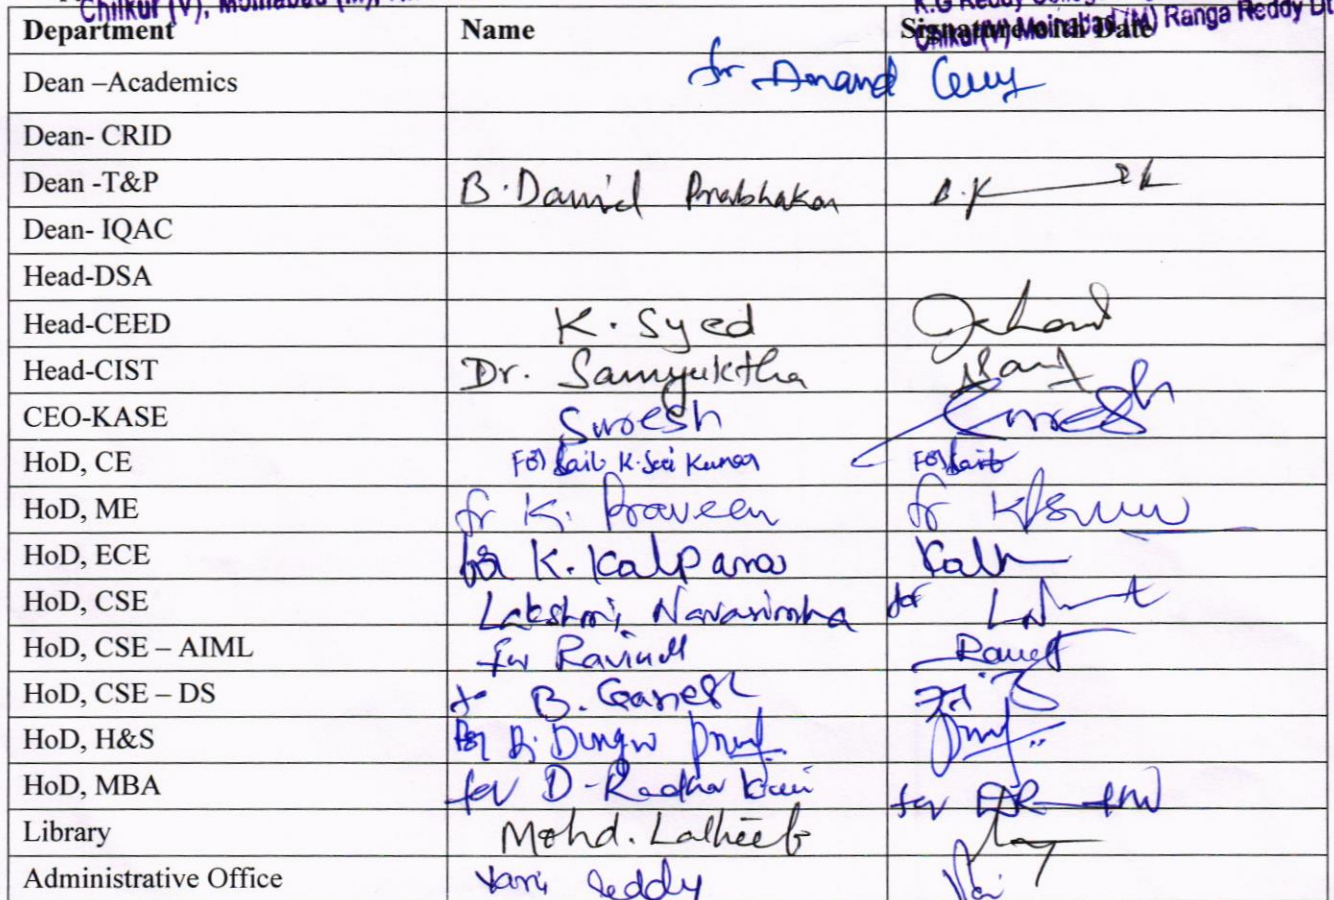 Chilkur (V), Moinabad (M),
K.G Reddy
Chilkur(V) Moinabad (M) Ranga Reddy Dt
Department Name Signature with Date
Dean –Academics for Anand
Dean- CRID
Dean -T&P B. David Prabhakar
Dean- IQAC
Head-DSA
Head-CEED K. Syed
Head-CIST Dr. Samyuktha
CEO-KASE Suresh Suresh
HoD, CE For K. Sai Kumar For
HoD, ME fr K. Praveen fr
HoD, ECE for K. Kalpana
HoD, CSE Lakshmi Narasimha for
HoD, CSE – AIML for
HoD, CSE – DS B. Ganesh
HoD, H&S For
HoD, MBA for D. Radha for
Library Mohd.
Administrative Office Reddy